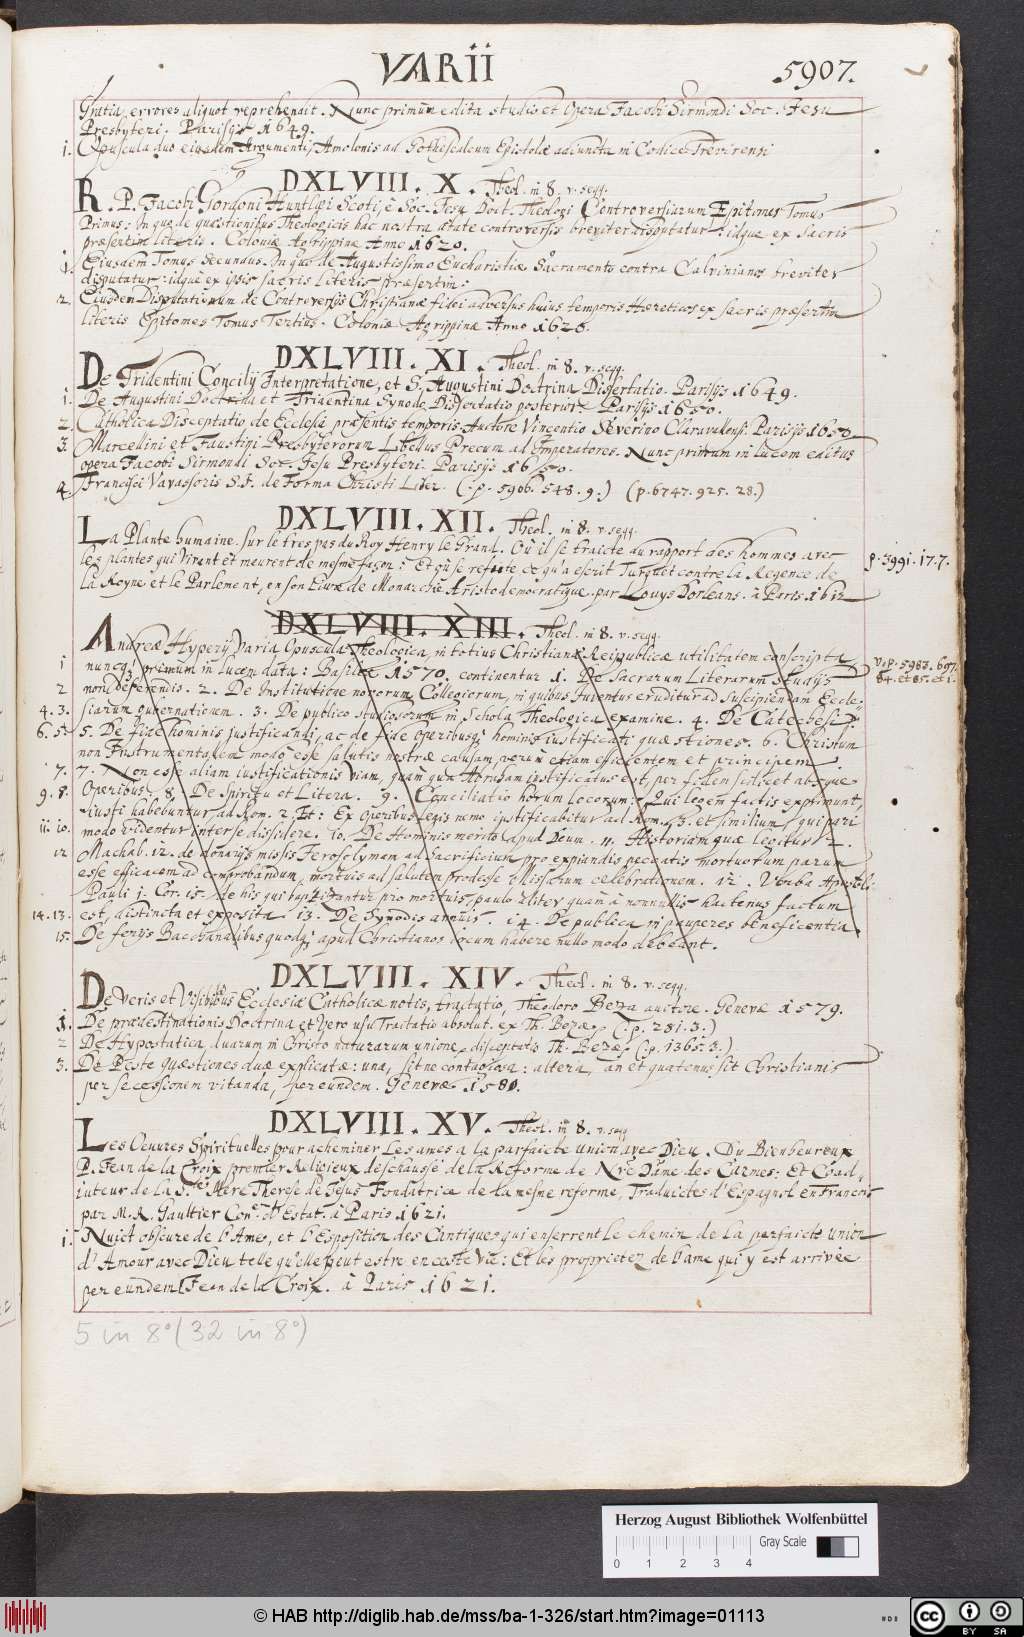 VARII
5907.
Gratia, errores aliquot reprehendit. Nunc primùm edita studio et opera Jacobi Sirmondi Soc. Jesu
Presbyteri. Parisijs 1649.
1. Opuscula duo ejusdem Argumentj Amolonis ad Gothescalcum Epistolæ adiuncta in Codice Trevirensi
DXLVIII. X. Theol. in 8. v. segg.
R. P. Jacobi Gordoni Huntlæi Scoti, è Soc. Jesu Doct. Theologi Controversiarum Epitomes Tomus
Primus: In quo de quæstionibus Theologicis hac nostra ætate controversis breviter disputatur: idque ex Sacris
præsertim literis. Coloniæ Agrippinæ Anno 1620.
1. Ejusdem Tomus Secundus. In quo de Augustissimo Eucharistiæ Sacramento contra Calvinianos breviter
disputatur: idque ex ipsis sacris literis præsertim:
2. Ejusdem Disputationum de Controversijs Christianæ fidei adversus huius temporis Hæreticos ex sacris præsertim
literis Epitomes Tomus Tertius. Coloniæ Agrippinæ Anno 1620.
DXLVIII. XI. Theol. in 8. v. segg.
De Tridentini Concilij Interpretatione, et S. Augustini Doctrina Dissertatio. Parisijs 1649.
1. De Augustini Doctrida et Tridentina Synodo Dissertatio posterior. Parisijs 1650.
2. Catholica Disceptatio de Ecclesia præsentis temporis Autore Vincentio Severino Claravallensi. Parisijs 1650
3. Marcellini et Faustini Presbyterorum Libellus Precum ad Imperatores. Nunc primum in lucem editus
opera Jacobi Sirmondi Soc. Jesu Presbyteri. Parisijs 1650.
4. Francisci Vavassoris S. J. de Forma Christi Liber. (:p. 5906. 548. 9.) (p. 6747. 925. 28.)
DXLVIII. XII. Theol. in 8. v. segg.
La Plante humaine. sur le trespas du Roy Henry le Grand. Où il se traicte du rapport des hommes avec
les plantes qui Vivent et meurent de mesme façon: Et où se refute ce qu'a escrit Turquet contre la Regence de
la Royne et le Parlement, en son Livre de Monarchie Aristodemocratique. par Louys Dorleans. à Paris. 1612
p. 3991. 17. 7.
DXLVIII. XIII. Theol. in 8. v. segg.
Andreæ Hyperij Varia Opuscula Theologica, in totius Christianæ Reipublicæ utilitatem conscripta
1 nuncq; primum in lucem data: Basileæ 1570. continentur 1. De Sacrarum Literarum studijs
v. p. 5983. 607.
84. et 85. et 1.
2 non deferendis. 2. De Institutione novorum Collegiorum, in quibus Juventus eruditur ad suscipiendam Eccle-
4. 3. siarum gubernationem. 3. De publico studiosorum in Schola Theologica examine. 4. De Catechesi.
6. 5. 5. De fide hominis justificandi, ac de fide operibusq; hominis iustificati quæstiones. 6. Christum
non Instrumentalem modò esse salutis nostræ causam, verùm etiam efficientem et principem.
7. 7. Non esse aliam iustificationis viam, quàm qua Abraham iustificatus est per fidem scilicet absque
9. 8. Operibus. 8. De Spiritu et Litera. 9. Conciliatio horum locorum: Qui legem factis exprimunt,
iusti habebuntur ad Rom. 2. Et: Ex operibus legis nemo iustificabitur ad Rom. 3. et similium, qui pari
11. 10. modo videntur inter se dissidere. 10. De Hominis merito apud Deum. 11. Historiam quæ legitur 2.
12 Machab. 12. de donarijs missis Jerosolymam ad Sacrificium pro expiandis peccatis mortuorum parum
esse efficacem ad comprobandum, mortuis ad salutem prodesse Missarum celebrationem. 12. Verba Apostoli
Pauli 1. Cor. 15. de his qui baptizantur pro mortuis, paulo aliter quam à nonnullis hactenus factum
14. 13. est, distincta et exposita. 13. De Synodis annuis. 14. De publica in pauperes beneficentia.
15. De ferijs Bacchanalibus quodq; apud Christianos locum habere nullo modo debeant.
DXLVIII. XIV. Theol. in 8. v. segg.
De Veris et Visibilibus Ecclesiæ Catholicæ notis, tractatio, Theodoro Beza auctore. Genevæ 1579.
1. De prædestinationis Doctrina et Vero usu Tractatio absolut. ex Th. Bezæ. (:p. 281. 3.)
2 De Hypostatica duarum in Christo naturarum unione, disceptatio Th. Bezæ (:p. 1365. 3.)
3. De Peste quæstiones duæ explicatæ: una, sitne contagiosa: altera, an et quatenus sit Christianis
per secessionem vitanda, per eundem. Genevæ 1580.
DXLVIII. XV. Theol. in 8. v. segg
Les Oeuvres Spirituelles pour acheminer les ames a la parfaicte union avec Dieu. Du Bienheureux
P. Jean de la Croix premier Religieux deschaussé de la Reforme de Nre Dame des Carmes: Et Coad-
iuteur de la Ste Mere Therese de Jesus Fondatrice de la mesme reforme, Traduictes d'Espagnol en Francois
par M. R. Gaultier Conr. d'Estat. à Paris 1621.
1. Nuict obscure de l'Ame, et l'Esposition des Cantiques qui enserrent le chemin de la parfaicte union
d'Amour avec Dieu telle qu'elle peut estre en ceste Vie: Et les proprietez de l'ame qui y est arrivée
per eundem Jean de la Croix. à Paris 1621.
5 in 8° (32 in 8°)
Herzog August Bibliothek Wolfenbüttel
Gray Scale
0 1 2 3 4
© HAB http://diglib.hab.de/mss/ba-1-326/start.htm?image=01113
cc BY SA